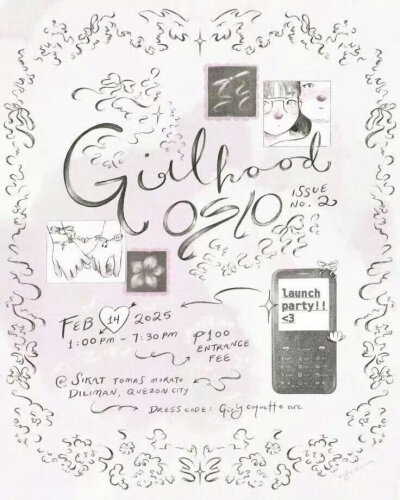 Girlhood
OSLO
ISSUE
NO. 2
launch
party!!
<3
FEB 14 2025
1:00 PM - 7:30 PM
₱100
ENTRANCE
FEE
@ SIKAT TOMAS MORATO
DILIMAN, QUEZON CITY
DRESS CODE: Girly coquette core